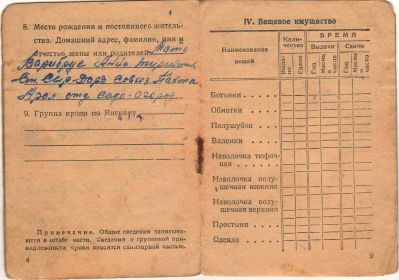 4
8. Место рождения и постоянного жительства. Домашний адрес, фамилия, имя и
отчество жены или родителей Мать
Анна
Ст. Сыр-Дарья Совхоз Пахта
Арал отд Садо-Огород
9. Группа крови по Янскому
Примечание. Общие сведения записываются в штабе части. Сведения о групповой принадлежности крови вносятся санитарной частью.
4
IV. Вещевое имущество
Наименование вещей
Количество
ВРЕМЯ
Выдачи
Сдачи
Выдано
Сдано
Год
Месяц и число
Год
Месяц и число
Ботинки
Обмотки
Полушубок
Валенки
Наволочка тюфячная
Наволочка подушечная нижняя
Наволочка подушечная верхняя
Простыня
Одеяло
9